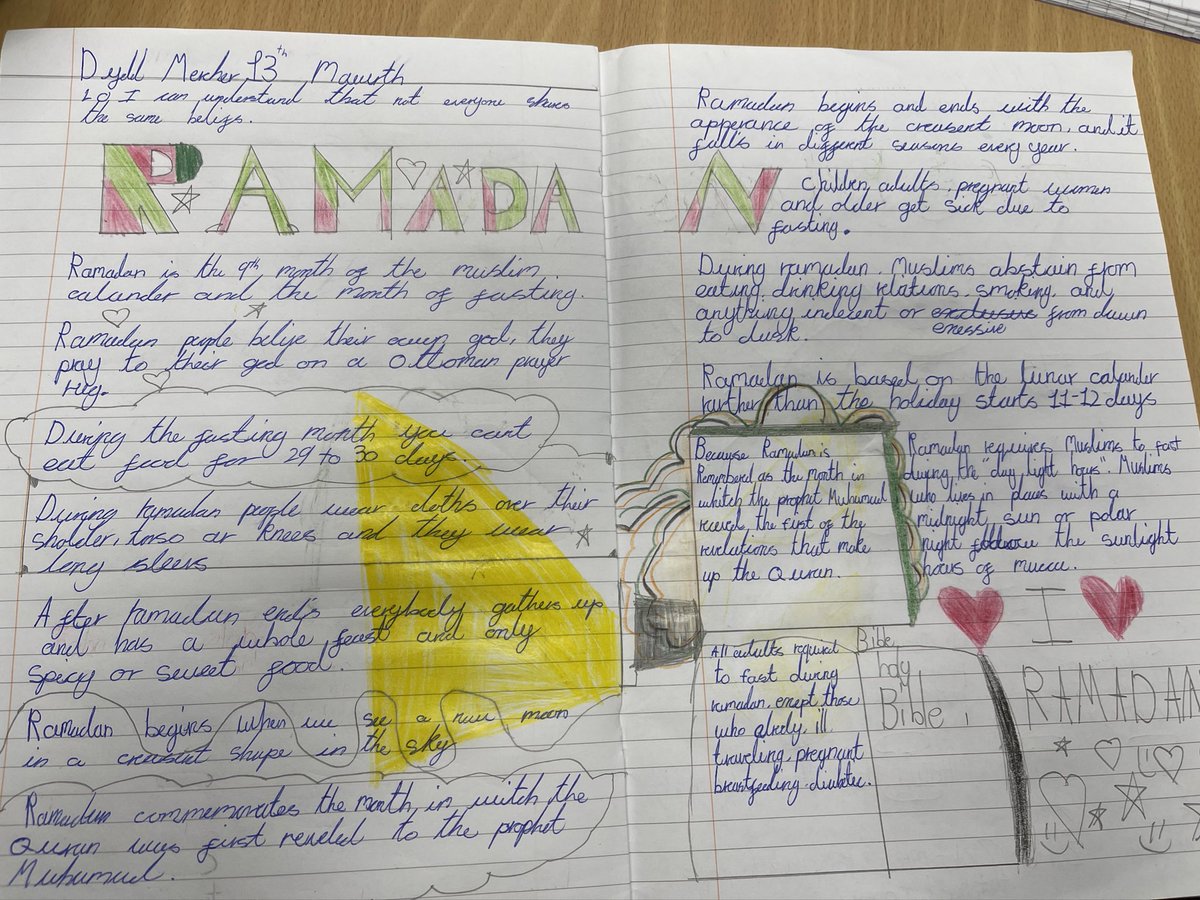 Dydd Mercher 13th Mawrth
LO I can understand that not everyone shares
the same beliefs.
RAMADAN
Ramadan is the 9th month of the muslim
calander and the month of fasting.
Ramadan people belife their owen god, they
pray to their god on a Ottoman prayer
rug.
During the fasting month you cant
eat food for 29 to 30 days
During ramadan people wear cloths over their
sholder, torso or knees and they wear
long sleevs
After ramadan ends everybody gathers up
and has a whole feast and only
spicy or sweet food.
Ramadan begins when we see a new moon
in a cresant shape in the sky
Ramadan commemorates the month in witch the
Quran was first reveled to the prophet
Muhamud.
Ramadan begins and ends with the
apperance of the creusent moon, and it
falls in different seasons every year.
Children, adults, pregnant women
and older get sick due to
fasting.
During ramadan, Muslims abstain from
eating, drinking relations, smoking, and
anything indecent or from dawn
exessive
to dusk.
Ramadan is based on the lunar calander
rarther than the holiday starts 11-12 days
Because Ramadan is
Remembered as the month in
whitch the prophet Muhamud
the first of the
revelations that make
up the Quran.
Ramadan requires Muslims to fast
during the day light hours. Muslims
who lives in places with a
midnight sun or polar
night the sunlight
hours of
All adults required
to fast during
ramadan, exept those
who ill
traveling, pregnant
breastfeeding diabetec.
Bible
holy
Bible
I
RAMADAN